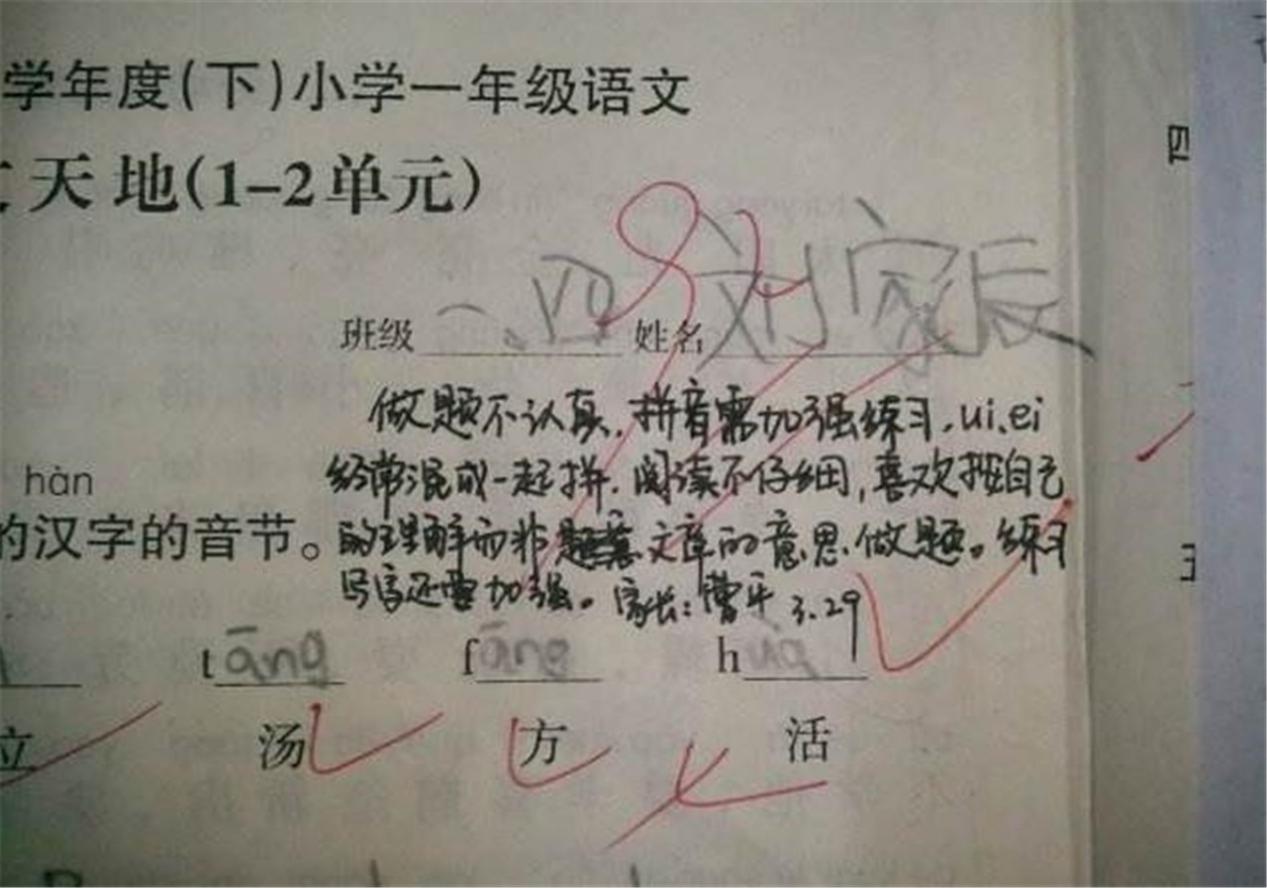 学年度(下)小学一年级语文
天地(1-2单元)
班级 一.四 姓名 刘家辰
做题不认真.拼音需加强练习.ui、ei
经常混成一起拼.阅读不仔细,喜欢按自己
hàn
的汉字的音节。
的理解而非文章的意思做题。练习
写字还需加强。家长:曹平 3.29
tāng fāng húa
立 汤 方 活
四